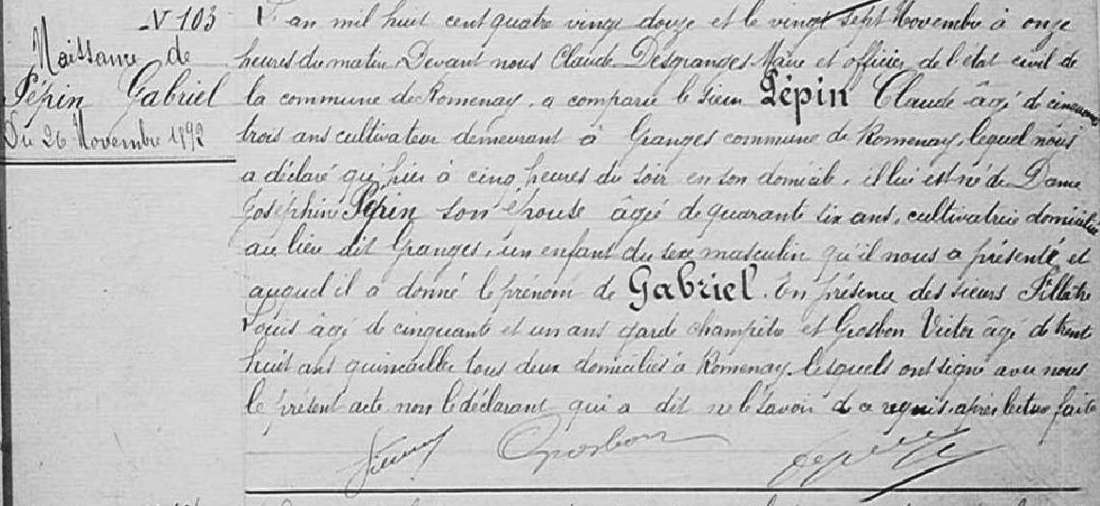 N 103
Naissance de
Pépin Gabriel
Du 26 Novembre 1892
L'an mil huit cent quatre vingt douze et le vingt sept Novembre à onze
heures du matin Devant nous Claude Desgranges Maire et officier de l'état civil de
la commune de Romenay, a comparu le sieur Pépin Claude âgé de cinquante
trois ans cultivateur demeurant à Granges commune de Romenay, lequel nous
a déclaré qu'hier à cinq heures du soir en son domicile, il lui est né de Dame
Joséphine Pépin son épouse âgée de quarante six ans, cultivatrice domiciliée
au lieu dit Granges, un enfant du sexe masculin qu'il nous a présenté et
auquel il a donné le prénom de Gabriel. En présence des sieurs Fillatre
Louis âgé de cinquante et un ans garde champêtre et Grosbon Victor âgé de trente
huit ans quincailler tous deux domiciliés à Romenay, lesquels ont signé avec nous
le présent acte non le déclarant qui a dit ne le savoir de ce requis, après lecture faite
Grosbon